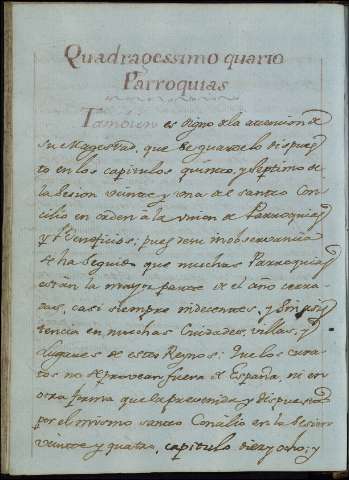 Quadragessimo quarto
Parroquias
Tambien es digno de la atencion de
su Magestad, que se guarde lo dispues
to en los capitulos quinto, y septimo de
la Sesion veinte y una del santo Con
cilio en orden à la union de Parroquias
y Beneficios; pues de su inobservancia
se ha seguido que muchas Parroquias
estàn la mayor parte de el año cerra
das, casi siempre indecentes, y sin asis
tencia en muchas Ciudades, villas, y
Lugares de estos Reynos: Que los cura
tos no se provean fuera de España, ni en
otra forma que la prevenida y dispuesta
por el mismo santo Concilio en la Sesion
veinte y quatro, capitulo diez y ocho; y